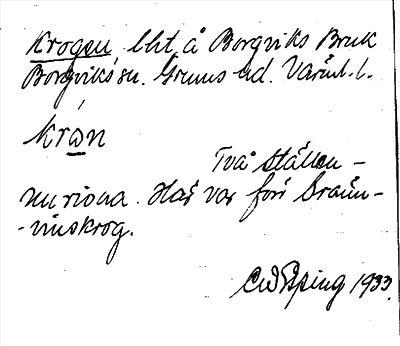 Krogen lht å Borgviks Bruk
Borgviks sn. Grums hd. Värml. l.
krωn
Två ställen -
nu rivna. Här var förr Bränn-
-vinskrog.
CW Eping 1933.